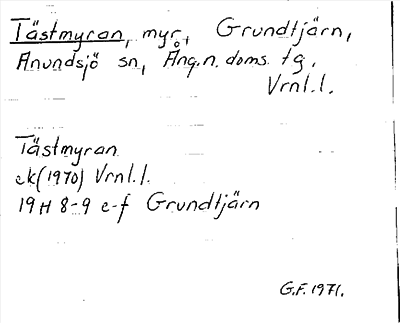 Tästmyran, myr, Grundtjärn,
Anundsjö sn, Ång.n. doms. tg.
Vrnl.l.
Tästmyran
ek(1970) Vrnl.l.
19H 8-9 e-f Grundtjärn
G.F. 1971.